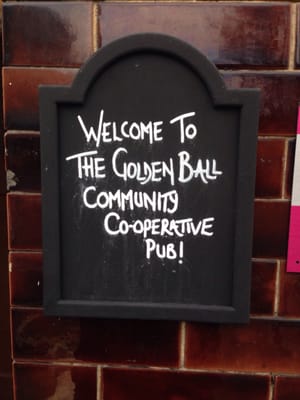 Welcome To
The Golden Ball
Community
Co-operative
Pub!